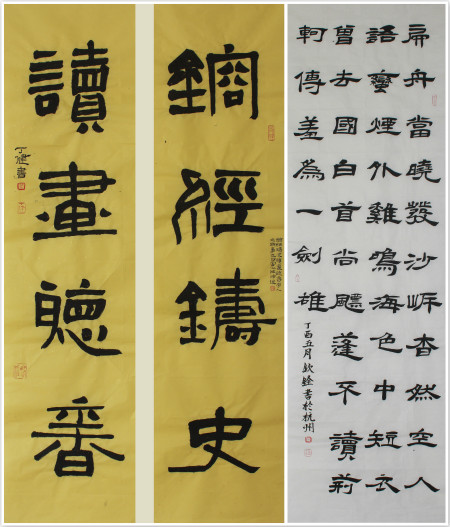 扁舟當曉發沙岸杳然空人
語蠻煙外雞鳴海色中短衣
曾去國白首尚飄蓬不讀荊
軻傳羞為一劍雄
丁酉五月書於杭州
鎔經鑄史
讀畫聽香
丁健書